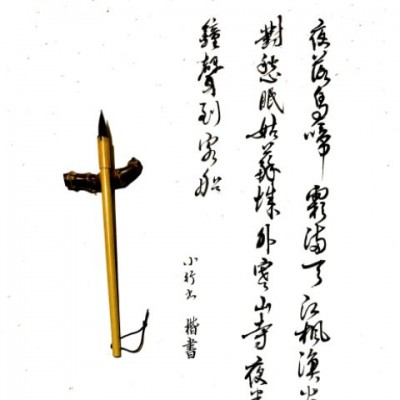 夜落烏啼霜满天江枫渔火
對愁眠姑蘇城外寒山寺夜半
鐘聲到客船
小行书 楷書